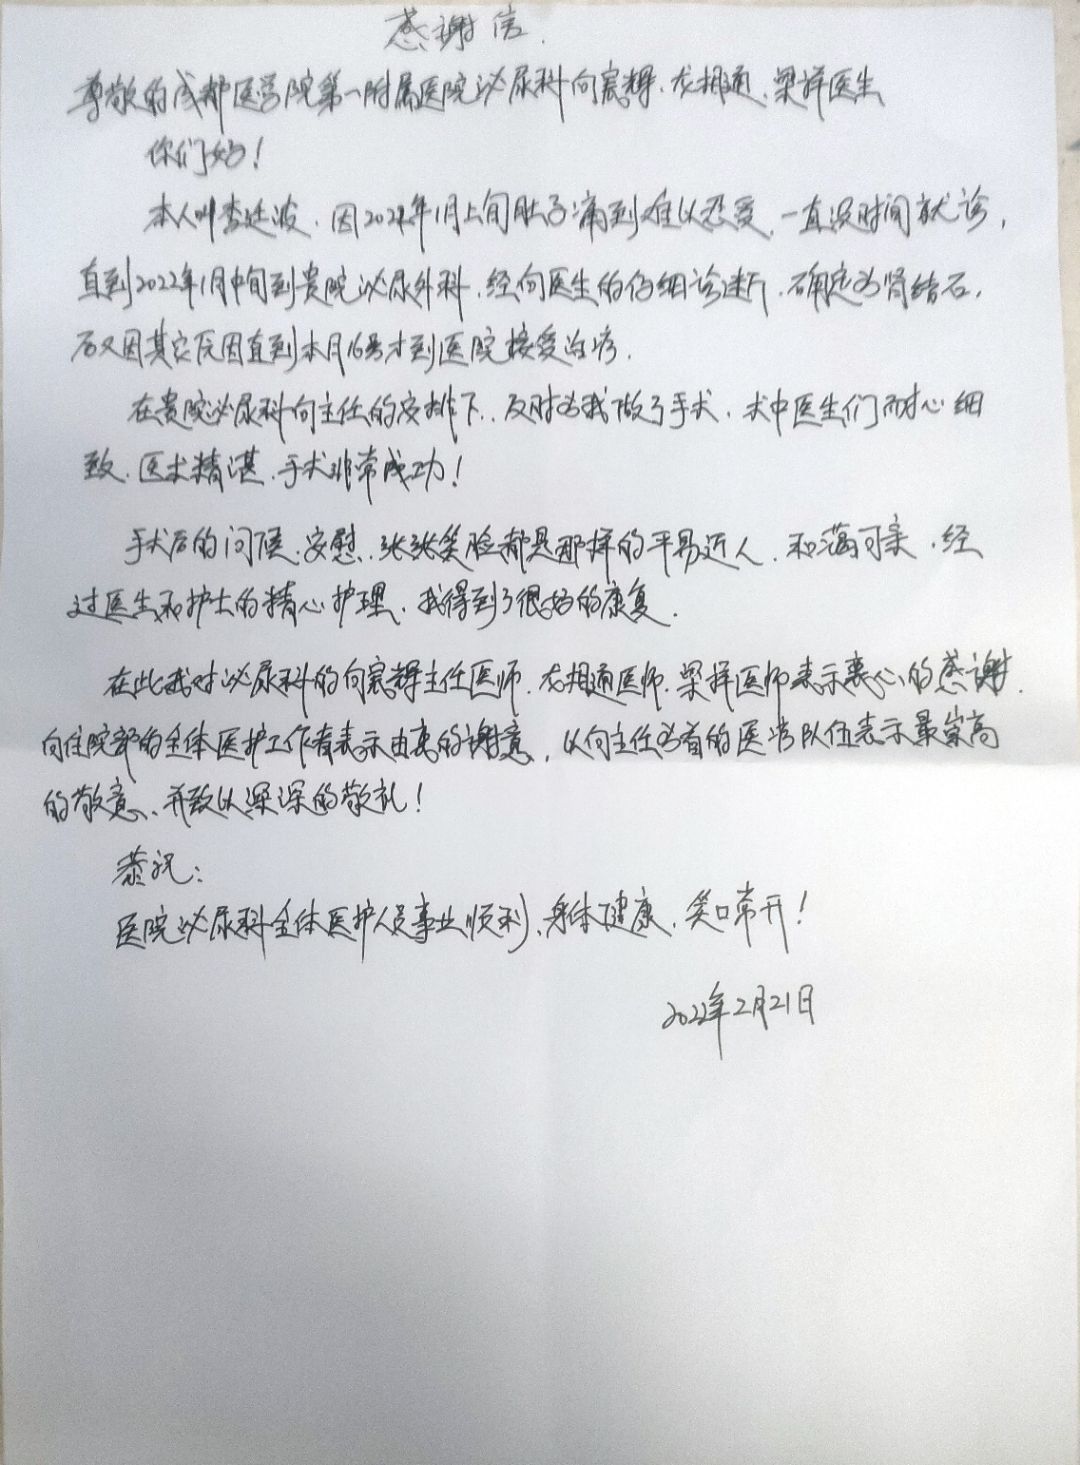 感谢信.
尊敬的成都医学院第一附属医院泌尿科向宸辉、龙相通、梁择医生
你们好!
本人叫李廷波,因2022年1月上旬肚子痛到难以忍受,一直没时间就诊,
直到2022年1月中旬到贵院泌尿外科,经向医生的仔细诊断,确定为肾结石,
后又因其它原因直到本月16号才到医院接受治疗.
在贵院泌尿科向主任的安排下,及时为我做了手术,术中医生们耐心细
致、医术精湛、手术非常成功!
手术后的问候、安慰、张张笑脸都是那样的平易近人、和蔼可亲,经
过医生和护士的精心护理、我得到了很好的康复.
在此我对泌尿科的向宸辉主任医师、龙相通医师、梁择医师表示衷心的感谢.
向住院部的全体医护工作者表示由衷的谢意,以向主任为首的医疗队伍表示最崇高
的敬意、并致以深深的敬礼!
恭祝:
医院泌尿科全体医护人员事业顺利、身体健康、笑口常开!
2022年2月21日